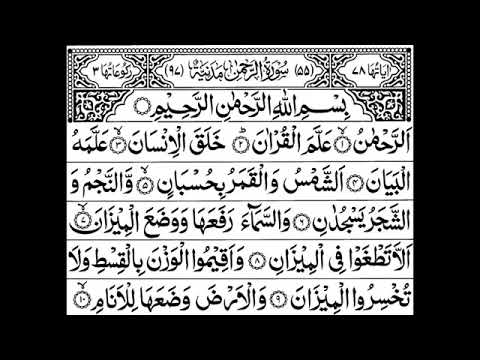 اٰیَاتُهَا ٧٨ (٥٥) سُوْرَةُ الرَّحْمٰنِ مَدَنِيَّةٌ (٩٧) رُكُوْعَاتُهَا ٣
بِسْمِ اللّٰهِ الرَّحْمٰنِ الرَّحِيْمِ
اَلرَّحْمٰنُ ۙ﴿١﴾ عَلَّمَ الْقُرْاٰنَ ؕ﴿٢﴾ خَلَقَ الْاِنْسَانَ ۙ﴿٣﴾ عَلَّمَهُ
الْبَيَانَ ﴿٤﴾ اَلشَّمْسُ وَالْقَمَرُ بِحُسْبَانٍ ۪﴿٥﴾ وَّالنَّجْمُ وَ
الشَّجَرُ يَسْجُدٰنِ ﴿٦﴾ وَالسَّمَآءَ رَفَعَهَا وَوَضَعَ الْمِيْزَانَ ۙ﴿٧﴾
اَلَّا تَطْغَوْا فِى الْمِيْزَانِ ﴿٨﴾ وَاَقِيْمُوا الْوَزْنَ بِالْقِسْطِ وَلَا
تُخْسِرُوا الْمِيْزَانَ ﴿٩﴾ وَالْاَرْضَ وَضَعَهَا لِلْاَنَامِ ۙ﴿١٠﴾